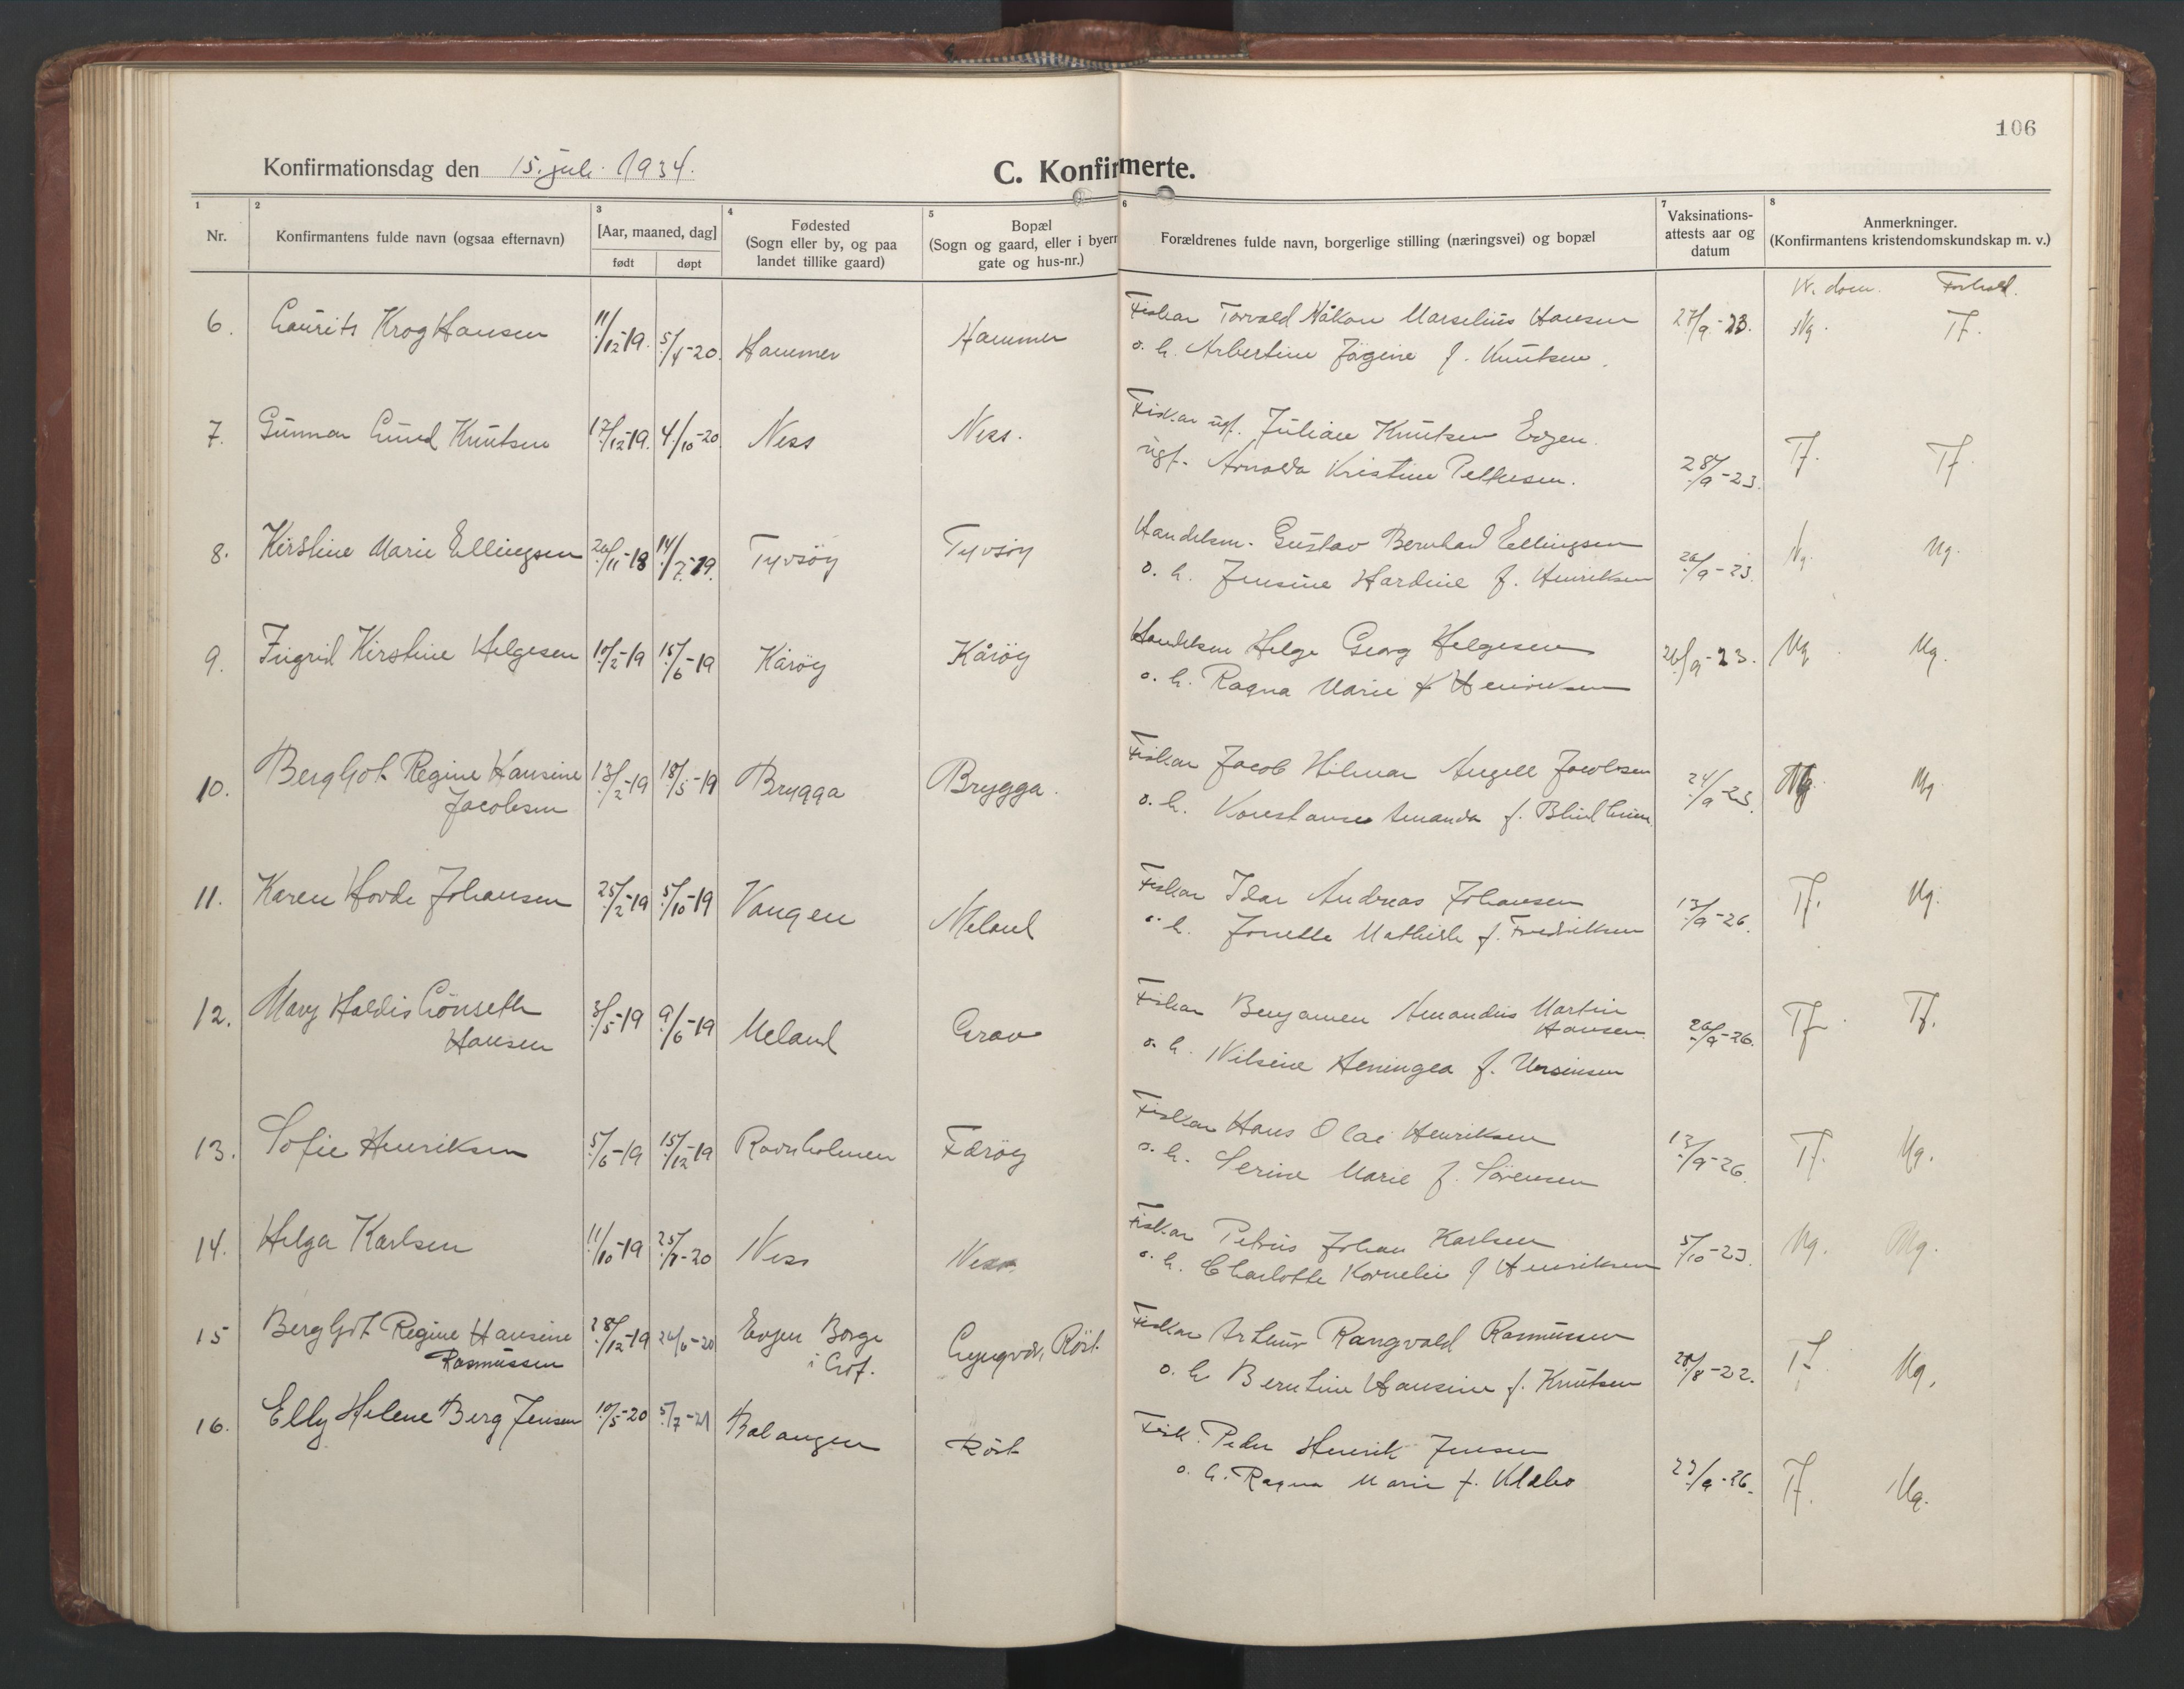 106
Konfirmationsdag den 15. juli 1934.
C. Konfirmerte.
1 2 3 4 5 6 7 8
Nr.
Konfirmantens fulde navn (ogsaa efternavn)
[Aar, maaned, dag]
født døpt
Fødested
(Sogn eller by, og paa
landet tillike gaard)
Bopæl
(Sogn og gaard, eller i byern
gate og hus-nr.)
Forældrenes fulde navn, borgerlige stilling (næringsvei) og bopæl
Vaksinations-
attests aar og
datum
Anmerkninger.
(Konfirmantens kristendomskundskap m. v.)
Forhold.
6. Laurits Krog Hansen 11/12-19. 5/4-20. Hammer Hammer Fiskar Torvald Håkon Marselius Hansen 27/9-23. Ng. Tf.
o. h. Arbertine Jägine f. Knutsen.
7. Gunnar Lund Knutsen 17/12-19. 4/10-20 Ness Ness. Fiskar ugf. Julian Knutsen Evjen.
ugf. Arnolda Kristine Pettersen. 28/9-23. Tf. Tf.
8. Kirstine Marie Ellingsen 26/11-18 14/7-19. Tyvsöy Tyvsöy Handelsm. Gustav Bernhard Ellingsen 26/9-23. Ng. Mg.
o. h. Jensine Hardine f. Henriksen
9. Ingrid Kirstine Helgesen 10/2-19 15/6-19 Käröy Kåröy Handelsm Helge Georg Helgesen 26/9-23. Mg. Mg.
o. h. Ragna Marie f Henriksen
10. Bergljot Regine Hansine 13/2-19 18/5-19 Brygga Brygga. Fiskar Jacob Hilmar Angell Jacobsen 24/9-23. Mg. Mg
Jacobsen
o. h. Konstanse Amanda f. Blindheim.
11. Karen Hovde Johansen 25/2-19 5/10-19 Vangen Meland Fiskar Idar Andreas Johansen 13/9-26. Tf. Mg.
o. h. Jonette Mathilde f. Fredriksen
12. Mary Haldis Lönseth 3/5-19 9/6-19 Meland Grav Fiskar Benjamen Amandus Martin
Hansen Hansen. 26/9-26. Tf. Tf.
o. h. Nilsine Heningea f. Ursinsen
13. Sofie Henriksen 5/6-19 15/12-19 Ravnholmen Færöy Fiskar Hans Olai Henriksen 13/9-26. Tf. Mg.
o. h. Serine Marie f. Sörensen
14. Helga Karlsen 11/10-19 25/8-20 Ness Ness Fiskar Petrus Johan Karlsen 5/10-23. Mg. Mg.
o. h. Charlotte Kornelie f Henriksen
15 Bergljot Regine Hansine 28/12-19 26/6-20 Evjen Borge Lyngvær, Röst. Fiskar Arthur Rangvald Rasmussen
Rasmussen i Lof. 28/8-22. Tf. Mg.
o. h Berntine Hansine f. Knutsen
16. Elly Helene Berg Jensen 10/5-20 5/7-21 Balangen Röst Fisk. Peder Henrik Jensen
o. h. Ragna Marie f. Klæbo 23/9-26. Tf. Mg.